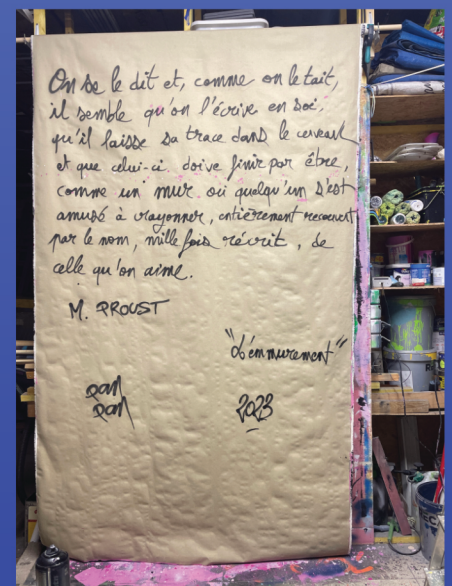 On se le dit et, comme on le tait,
il semble qu'on l'écrive en soi,
qu'il laisse sa trace dans le cerveau
et que celui-ci doive finir par être,
comme un mur où quelqu'un s'est
amusé à crayonner, entièrement recouvert
par le nom, mille fois récrit, de
celle qu'on aime.
M. PROUST
"L'emmurement"
pan
pan
2023